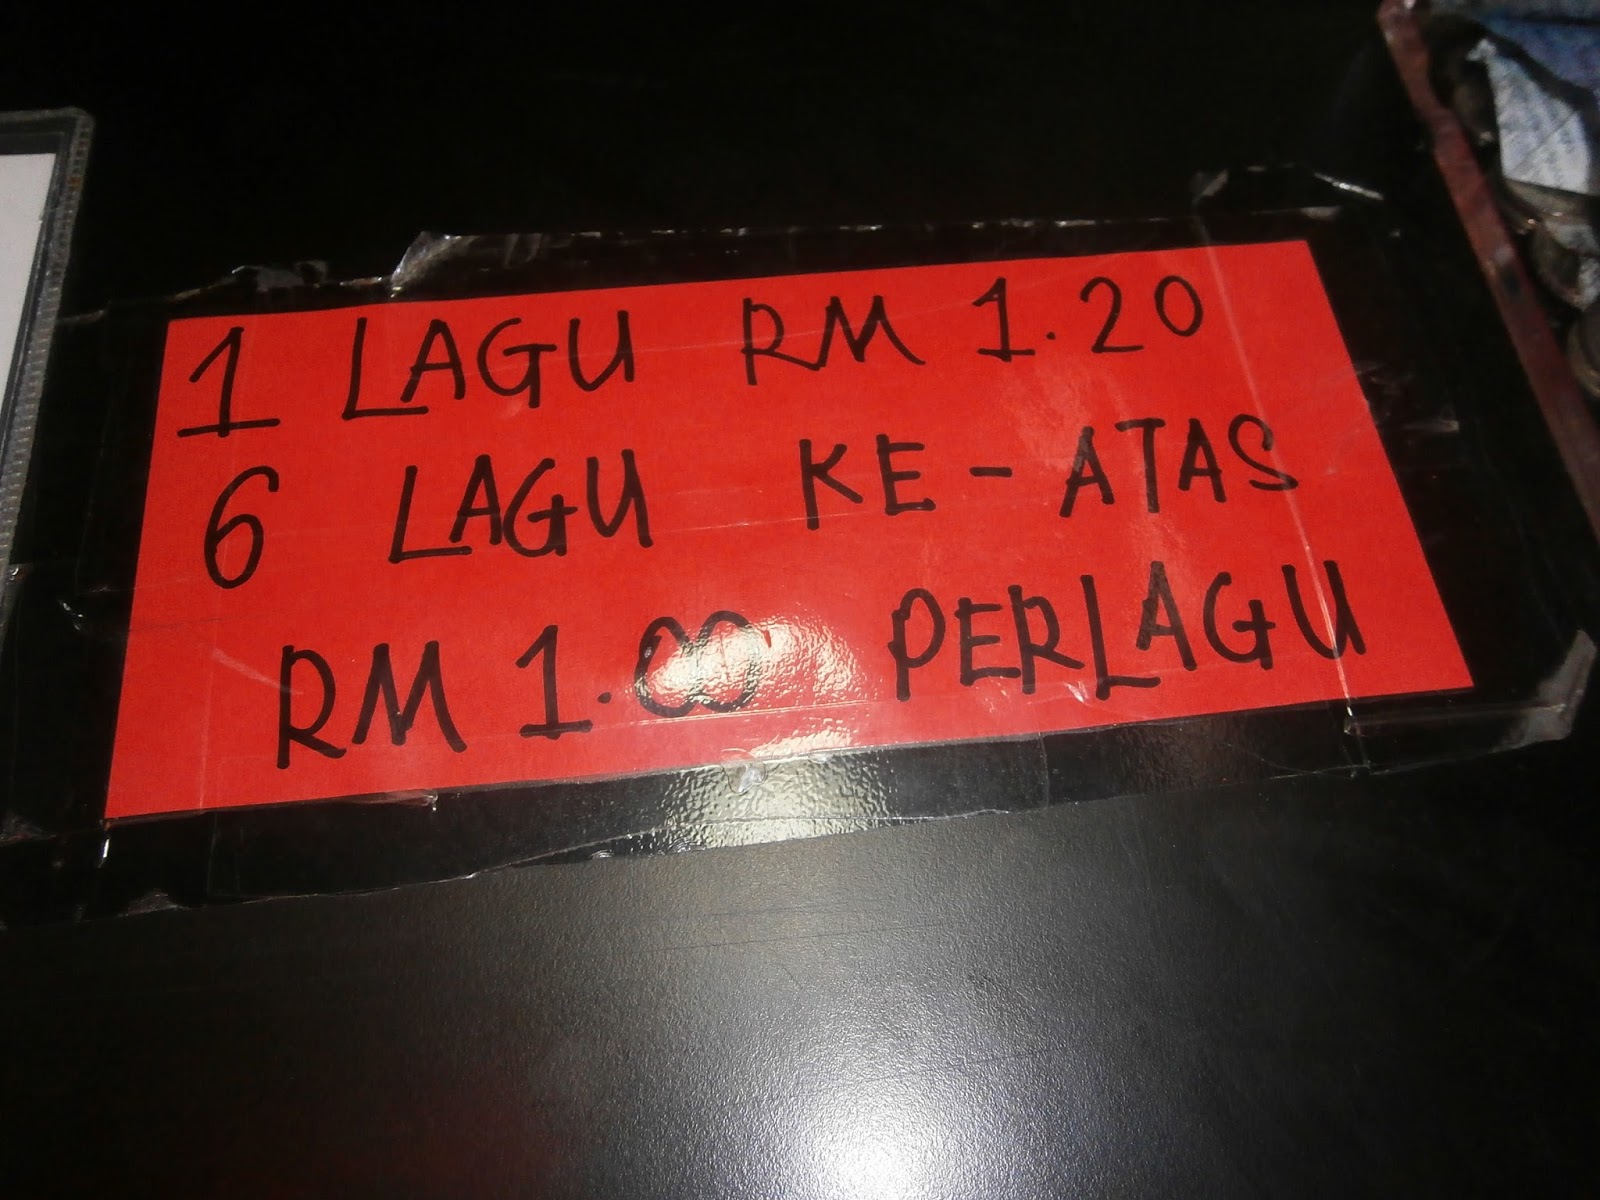 1 LAGU RM 1.20
6 LAGU KE-ATAS
RM 1.00 PERLAGU